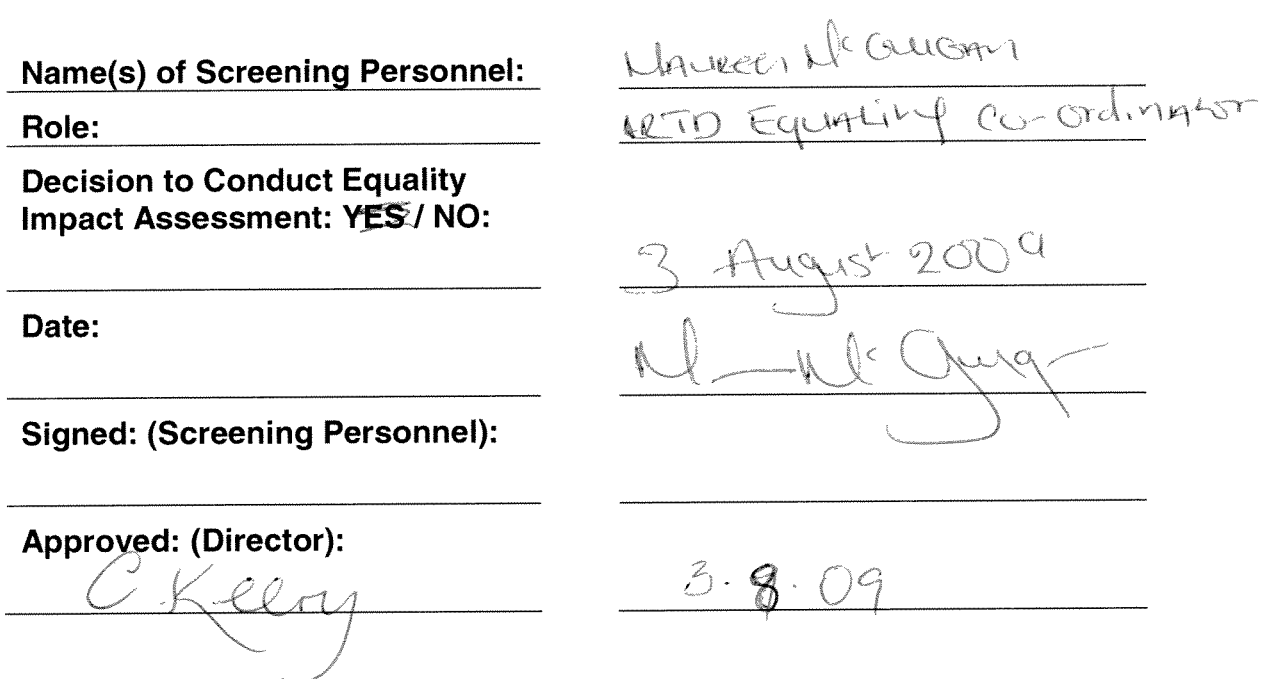 Name(s) of Screening Personnel: MAUREEN Mc GUIGAN
Role: ARTD EQUALITY Co-ordinator
Decision to Conduct Equality
Impact Assessment: YES / NO:
3 August 2009
Date:
M Mc Guig
Signed: (Screening Personnel):
Approved: (Director):
C Keery 3.8.09